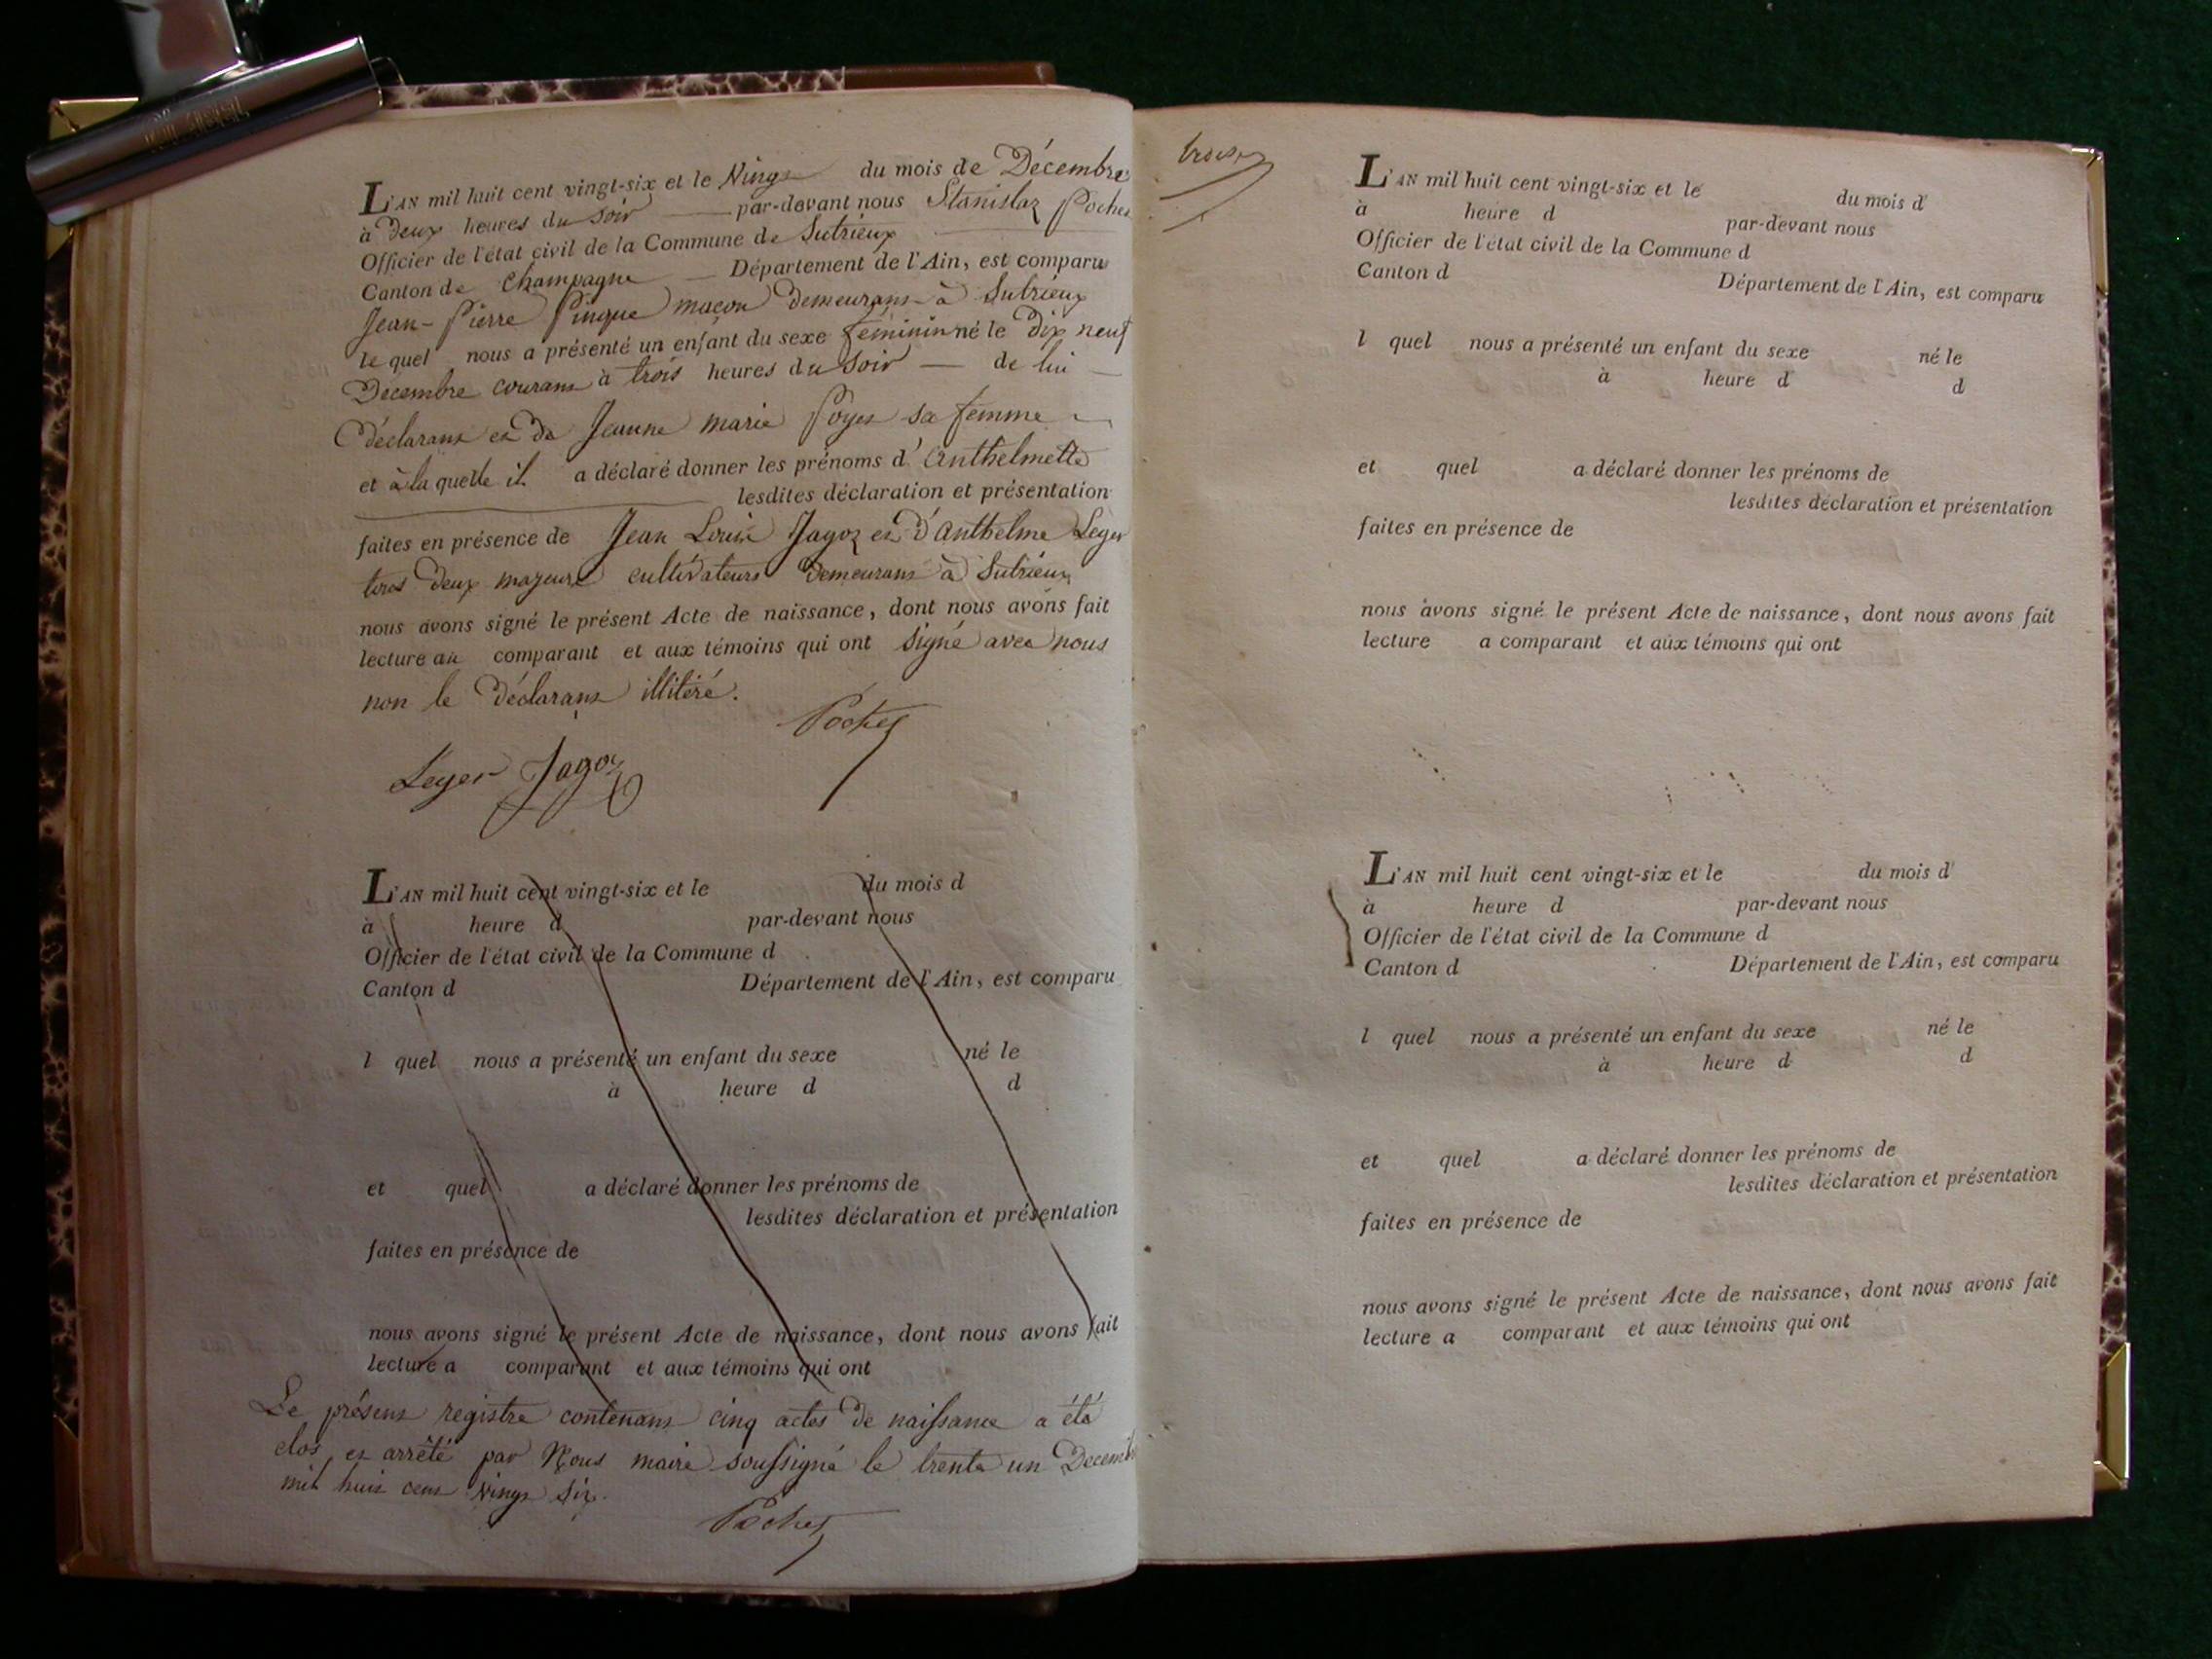 L'AN mil huit cent vingt-six et le Vingt du mois de Décembre
à Deux heures du Soir par-devant nous Stanislaz Pochet
Officier de l'état civil de la Commune de Sutrieux
Canton de Champagne Département de l'Ain, est comparu
Jean-Pierre Pinque maçon demeurant à Sutrieux
lequel nous a présenté un enfant du sexe féminin né le Dix neuf
Décembre courant à trois heures du Soir de lui
Déclarant et De Jeanne marie Poyet sa femme
et à laquelle il a déclaré donner les prénoms d'Anthelmette
lesdites déclaration et présentation
faites en présence de Jean Louis Jagoz et D'anthelme Leger
tous deux majeurs cultivateurs Demeurant à Sutrieux
nous avons signé le présent Acte de naissance, dont nous avons fait
lecture au comparant et aux témoins qui ont signé avec nous
non le Déclarant illitéré.
Pochet
Leger Jagoz
L'AN mil huit cent vingt-six et le du mois d
à heure d par-devant nous
Officier de l'état civil de la Commune d
Canton d Département de l'Ain, est comparu
l quel nous a présenté un enfant du sexe né le
à heure d d
et quel a déclaré donner les prénoms de
lesdites déclaration et présentation
faites en présence de
nous avons signé le présent Acte de naissance, dont nous avons fait
lecture a comparant et aux témoins qui ont
Le présent registre contenant cinq actes de naissance a été
clos et arrêté par Nous maire soussigné le trente un Decembre
mil huit cent vingt six.
Pochet
L'AN mil huit cent vingt-six et le du mois d
à heure d par-devant nous
Officier de l'état civil de la Commune d
Canton d Département de l'Ain, est comparu
l quel nous a présenté un enfant du sexe né le
à heure d d
et quel a déclaré donner les prénoms de
lesdites déclaration et présentation
faites en présence de
nous avons signé le présent Acte de naissance, dont nous avons fait
lecture a comparant et aux témoins qui ont
L'AN mil huit cent vingt-six et le du mois d
à heure d par-devant nous
Officier de l'état civil de la Commune d
Canton d Département de l'Ain, est comparu
l quel nous a présenté un enfant du sexe né le
à heure d d
et quel a déclaré donner les prénoms de
lesdites déclaration et présentation
faites en présence de
nous avons signé le présent Acte de naissance, dont nous avons fait
lecture a comparant et aux témoins qui ont